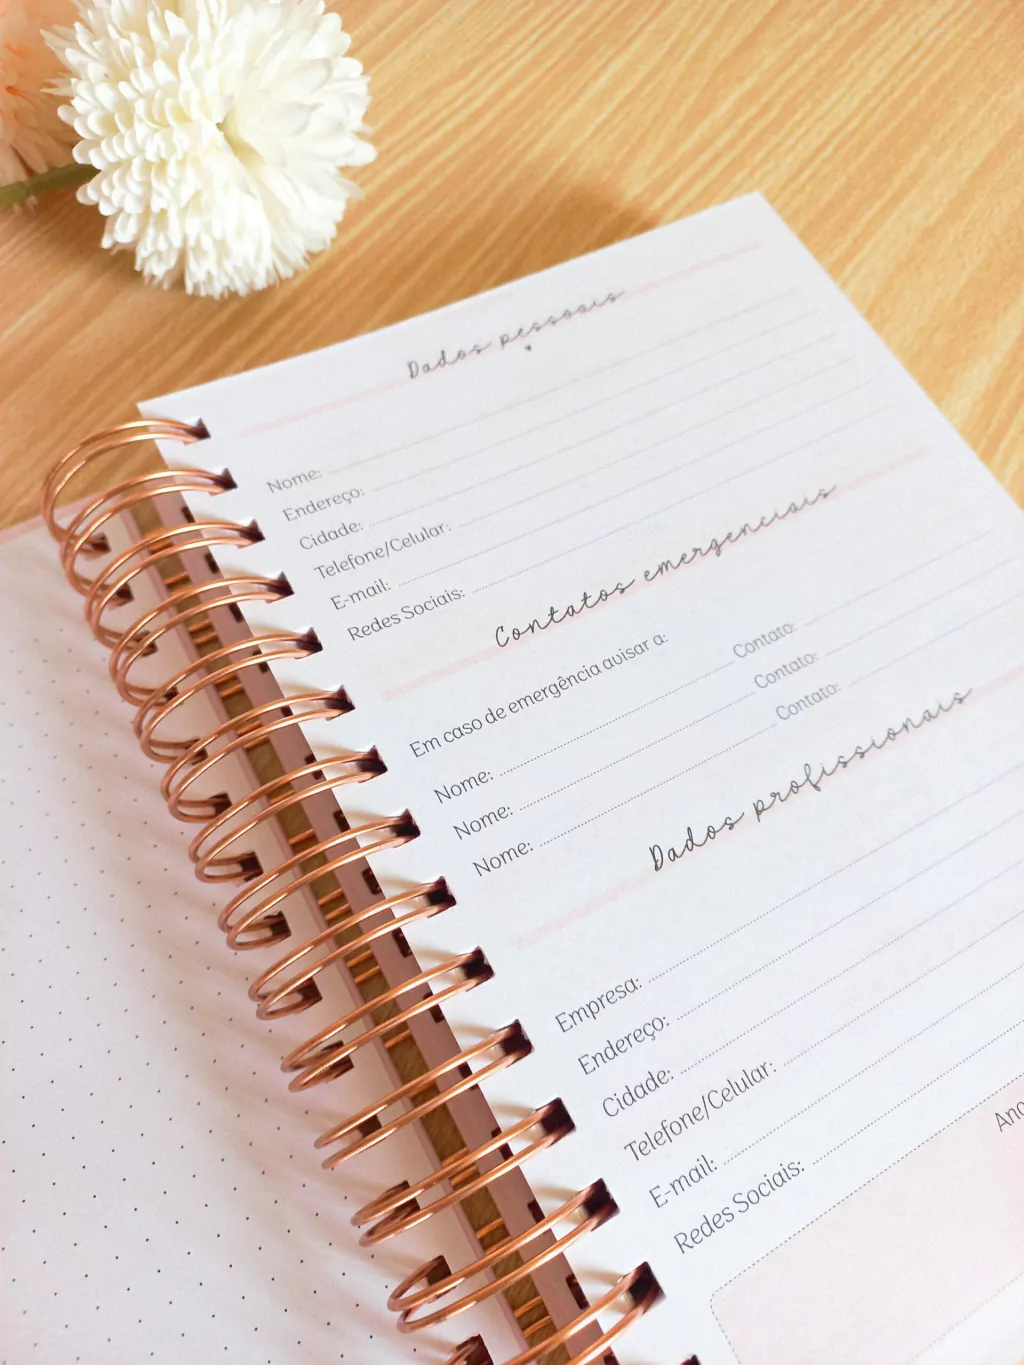 Dados pessoais
Nome:
Endereço:
Cidade:
Telefone/Celular:
E-mail:
Redes Sociais:
Contatos emergenciais
Em caso de emergência avisar a:
Nome: Contato:
Nome: Contato:
Nome: Contato:
Dados profissionais
Empresa:
Endereço:
Cidade:
Telefone/Celular:
E-mail:
Redes Sociais: